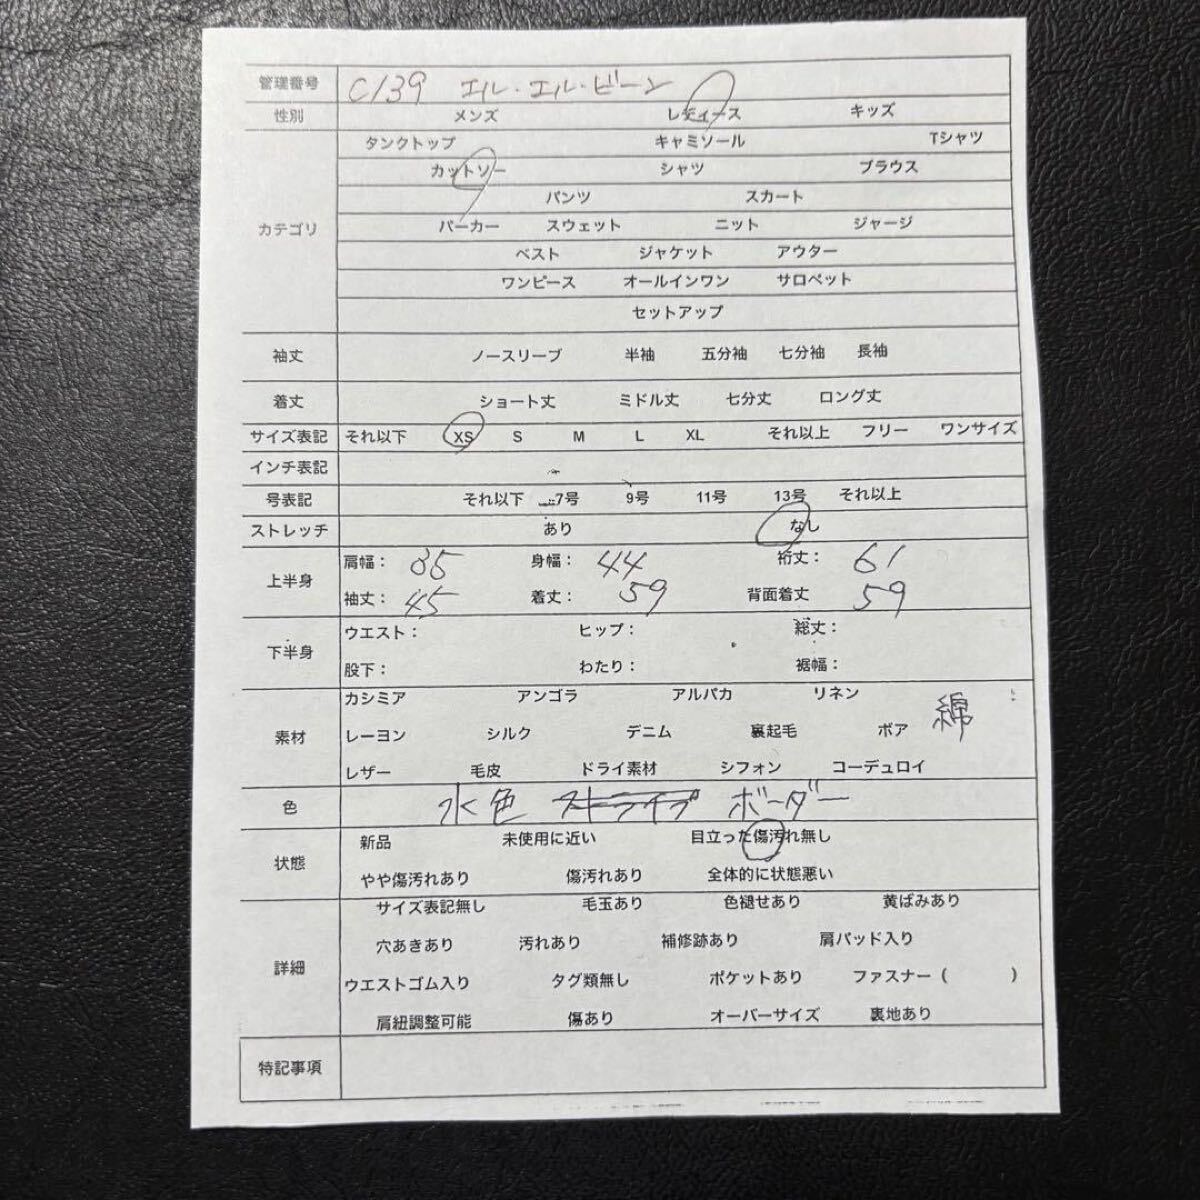 管理番号 C139 エル・エル・ビーン
性別 メンズ レディース キッズ
タンクトップ キャミソール Tシャツ
カットソー シャツ ブラウス
パンツ スカート
カテゴリ パーカー スウェット ニット ジャージ
ベスト ジャケット アウター
ワンピース オールインワン サロペット
セットアップ
袖丈 ノースリーブ 半袖 五分袖 七分袖 長袖
着丈 ショート丈 ミドル丈 七分丈 ロング丈
サイズ表記 それ以下 XS S M L XL それ以上 フリー ワンサイズ
インチ表記
号表記 それ以下 7号 9号 11号 13号 それ以上
ストレッチ あり なし
上半身 肩幅： 35 身幅： 44 裄丈： 61
袖丈： 45 着丈： 59 背面着丈 59
下半身 ウエスト： ヒップ： 総丈：
股下： わたり： 裾幅：
カシミア アンゴラ アルパカ リネン 綿
素材 レーヨン シルク デニム 裏起毛 ボア
レザー 毛皮 ドライ素材 シフォン コーデュロイ
色 水色 ストライプ ボーダー
状態 新品 未使用に近い 目立った傷汚れ無し
やや傷汚れあり 傷汚れあり 全体的に状態悪い
サイズ表記無し 毛玉あり 色褪せあり 黄ばみあり
穴あきあり 汚れあり 補修跡あり 肩パッド入り
詳細 ウエストゴム入り タグ類無し ポケットあり ファスナー（ ）
肩紐調整可能 傷あり オーバーサイズ 裏地あり
特記事項